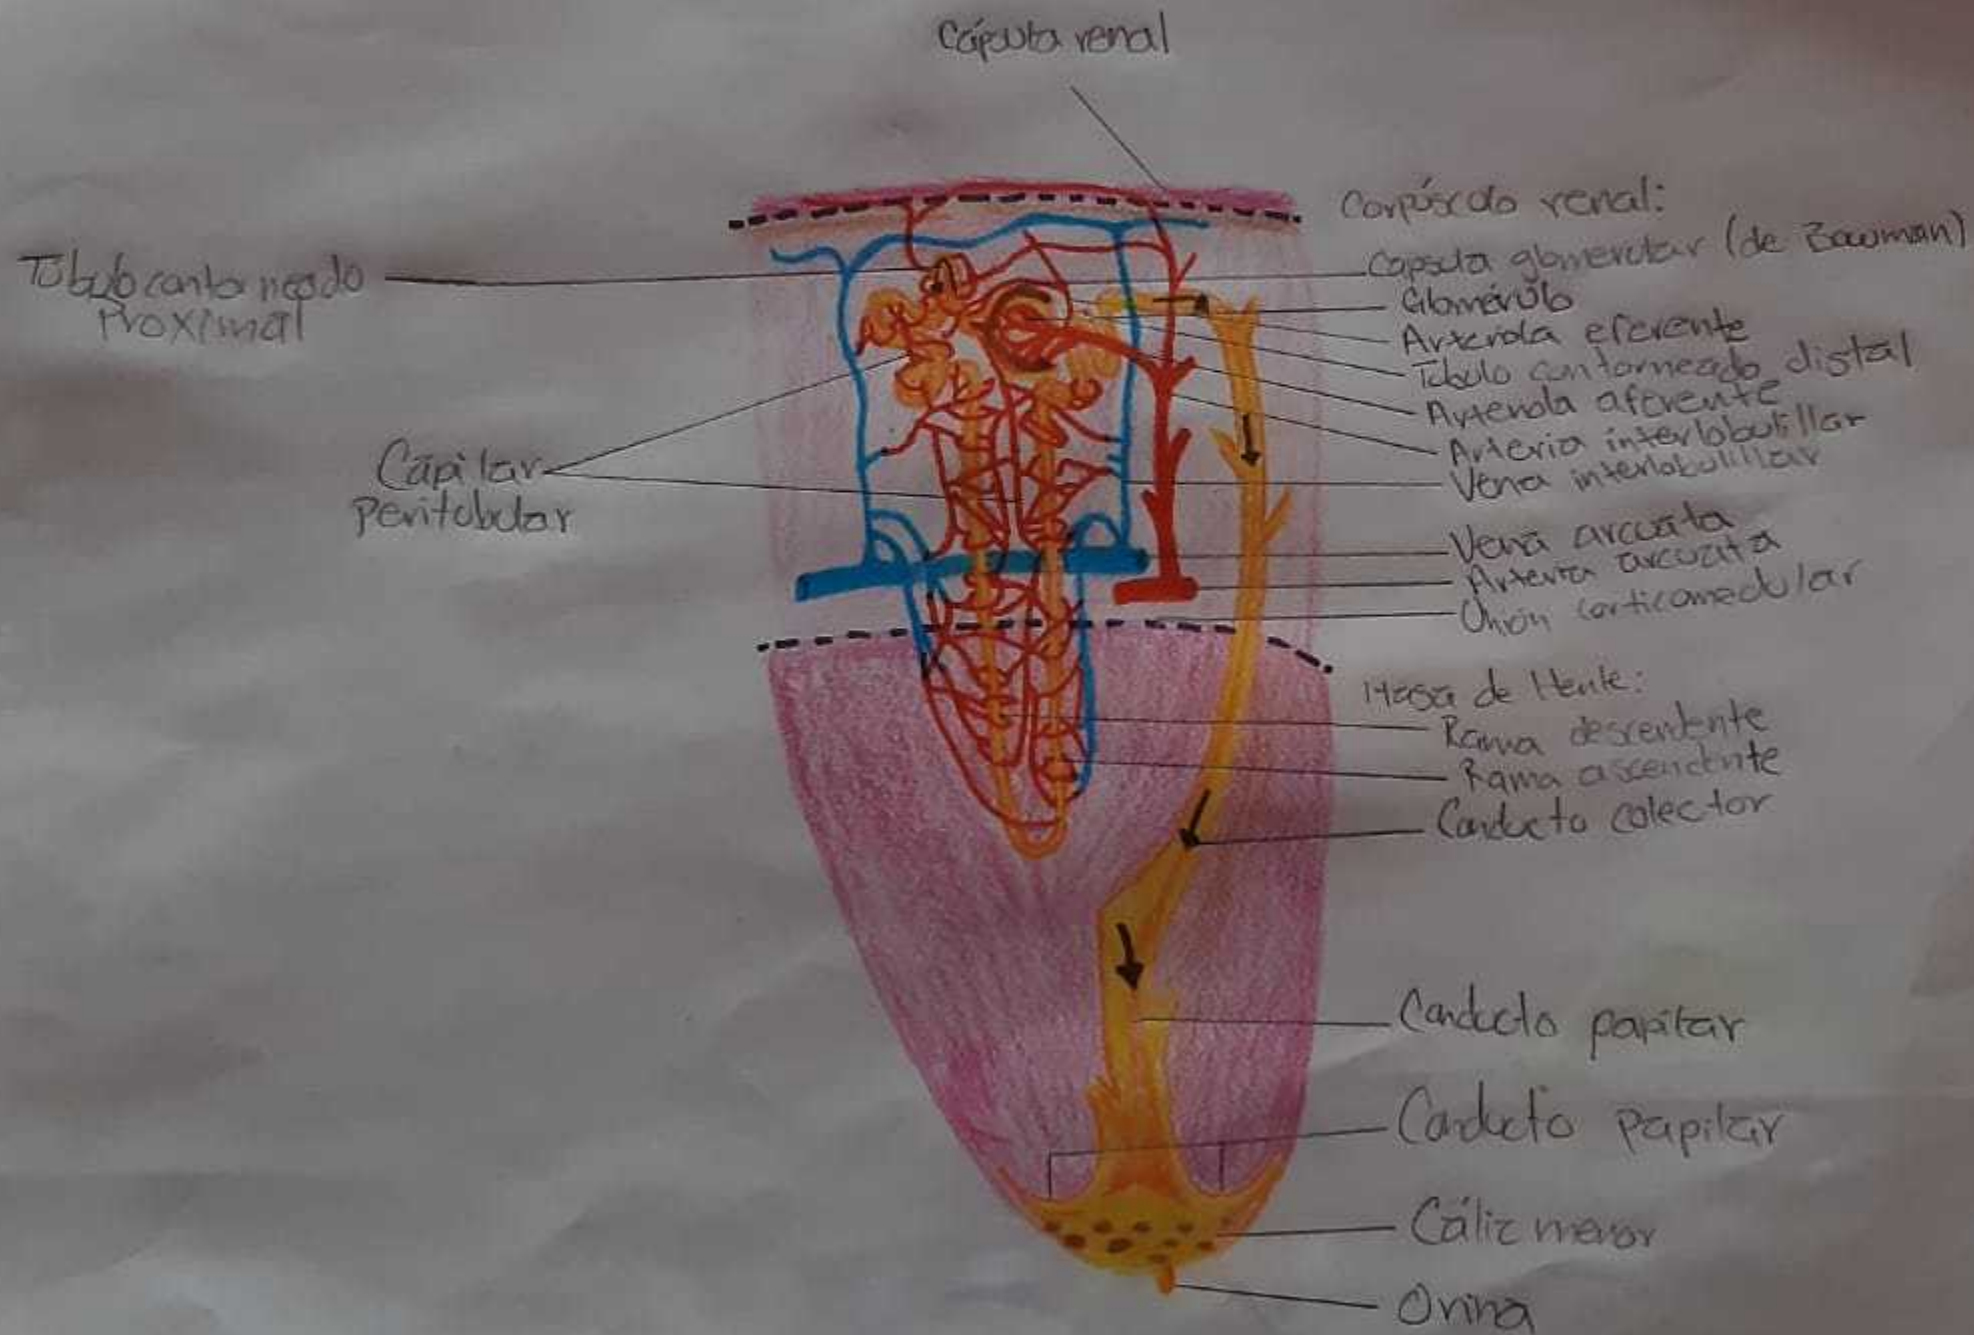 Cápsula renal
Túbulo contorneado
Proximal
Capilar
peritubular
Corpúsculo renal:
Capsula glomerular (de Bowman)
Glomérulo
Arteriola eferente
Túbulo contorneado distal
Arteriola aferente
Arteria interlobulillar
Vena interlobulillar
Vena arcuata
Arteria arcuata
Unión corticomedular
Hasa de Henle:
Rama descendente
Rama ascendente
Conducto colector
Conducto papilar
Conducto papilar
Cáliz menor
Orina